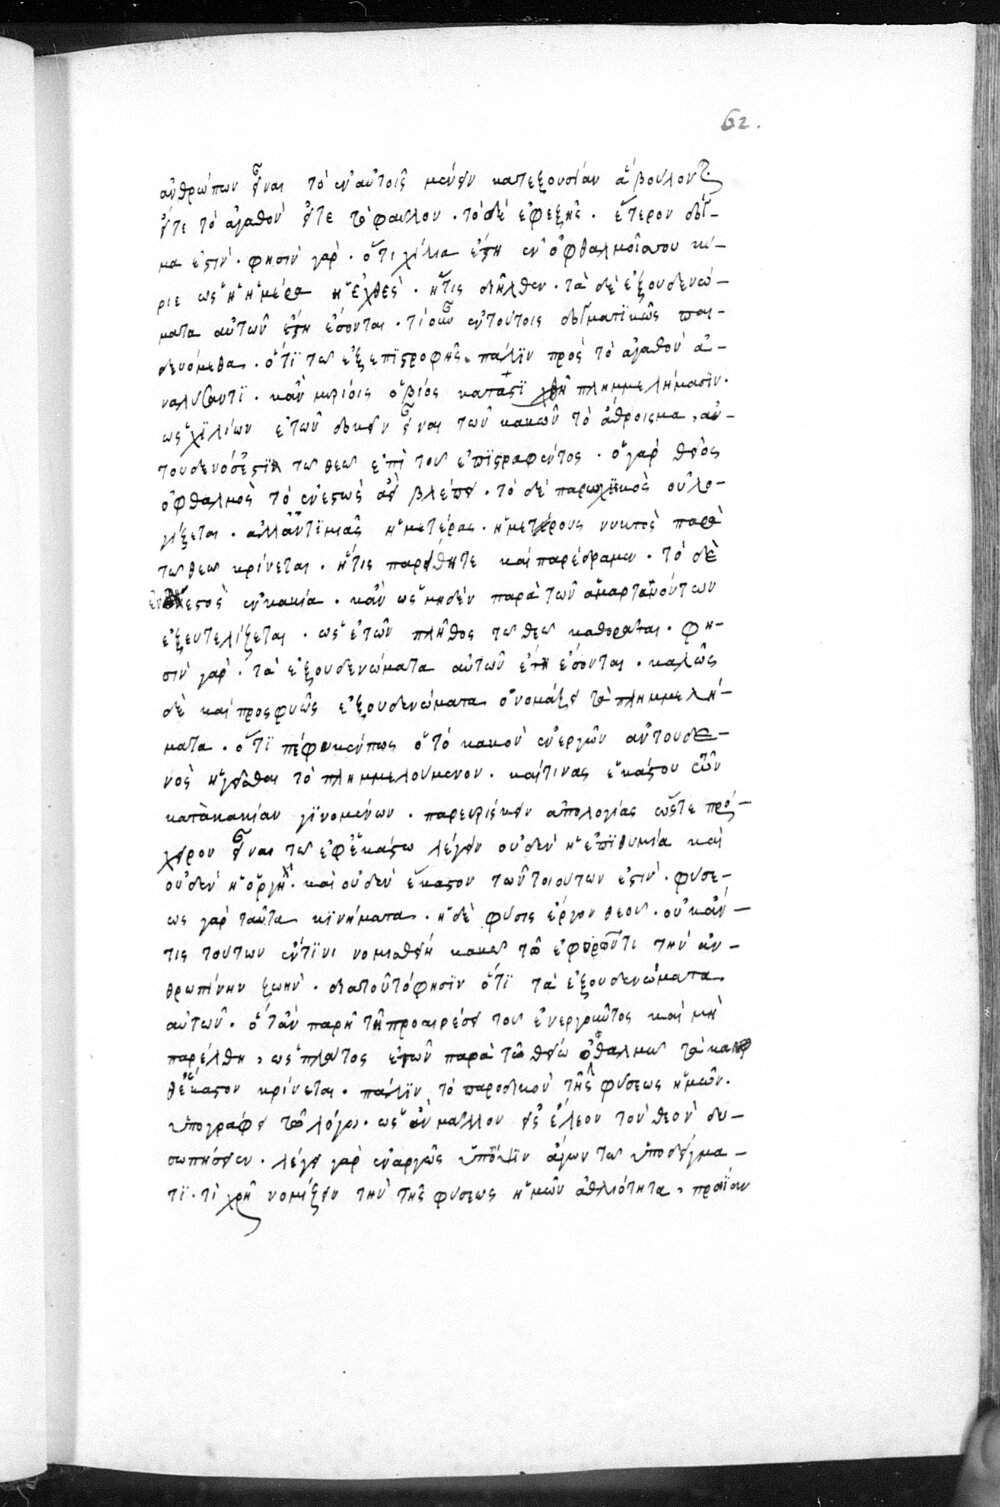 62.
ἀνθρώπων εἶναι τὸ ἐν αὐτοῖς μένειν κατεξουσίαν ἃ βούλονται
εἴτε τὸ ἀγαθὸν εἴτε τὸ φαῦλον. τὸ δὲ ἐφεξῆς. ἕτερον δόγ-
μα ἐστὶν. φησὶν γὰρ. ὅτι χίλια ἔτη ἐν ὀφθαλμοῖς σου κύ-
ριε ὡς ἡ ἡμέρα ἡ ἐχθὲς. ἥτις διῆλθεν. τὰ δὲ ἐξουδενώ-
ματα αὐτῶν ἔτη ἔσονται. τί οὖν ἐν τούτοις δογματικῶς παι-
δευόμεθα. ὅτι τῶ ἐξ ἐπιστροφῆς πάλιν πρὸς τὸ ἀγαθὸν ἀ-
ναλύσαντι. κἂν μυρίοις ὁ βίος πλημμελήμασιν.
ὡς χιλίων ἐτῶν δοκεῖν εἶναι τῶν κακῶν τὸ ἄθροισμα, ἀν-
τουδενός ἐστιν τῶ θεῶ ἐπὶ τοῦ ἐπιστραφέντος. ὁ γὰρ θεῖος
ὀφθαλμὸς τὸ ἐνεστὼς ἀεὶ βλέπει. τὸ δὲ παρωχηκὸς οὐ λο-
γίζεται. ἀλλ' ἀντὶ μιᾶς ἡμέρας. ἡμετέρους νυκτὸς παρὰ
τῶ θεῶ κρίνεται. ἥτις παρήχθητε καὶ παρέδραμεν. τὸ δὲ
κακία. κἂν ὡς μηδὲν παρὰ τῶν ἁμαρτανόντων
ἐξευτελίζεται. ὡς ἐτῶν πλῆθος τῶ θεῶ καθορᾶται. φη-
σὶν γὰρ. τὰ ἐξουδενώματα αὐτῶν ἔτη ἔσονται. καλῶς
δὲ καὶ προσφυῶς ἐξουδενώματα ὀνομάζει τὰ πλημμελή-
ματα. ὅτι πέφυκεν πως ὁ τὸ κακὸν ἐνεργῶν ἀντουδε-
νὸς ἡγεῖσθαι τὸ πλημμελούμενον. καί τινας ἑκάστου τῶν
κατὰ κακίαν γινομένων. παρευρίσκειν ἀπολογίας ὥστε πρό-
χειρον εἶναι τῶ ἐφ' ἑκάστω λέγειν οὐδὲν ἡ ἐπιθυμία καὶ
οὐδὲν ἡ ὀργὴ. καὶ οὐδὲν ἕκαστον τῶν τοιούτων ἐστὶν. φύσε-
ως γὰρ ταῦτα κινήματα. ἡ δὲ φύσις ἔργον θεοῦ. οὐκ ἂν
τις τούτων ἔν τινι νομισθείη κακῶ τῶ ἐφορῶντι τὴν ἀν-
θρωπίνην ζωὴν. διὰ τοῦτό φησιν ὅτι τὰ ἐξουδενώματα
αὐτῶν. ὅταν παρῆ τῆ προαιρέσει τοῦ ἐνεργοῦντος καὶ μὴ
παρέλθη, ὡς πλῆθος ἐτῶν παρὰ τῶ θείω ὀφθαλμῶ τὰ κα
θέκαστον κρίνεται. πάλιν τὸ παροδικὸν τῆς φύσεως ἡμῶν.
ὑπογράφει τῶ λόγω. ὡς ἂν μᾶλλον εἰς ἔλεον τὸν θεὸν δυ-
σωπήσειεν. λέγει γὰρ ἐναργῶς ὑπ' ὄψιν ἄγων τῶ ὑποδείγμα-
τι. τί χρὴ νομίζειν τὴν τῆς φύσεως ἡμῶν ἀθλιότητα, πρωΐαν